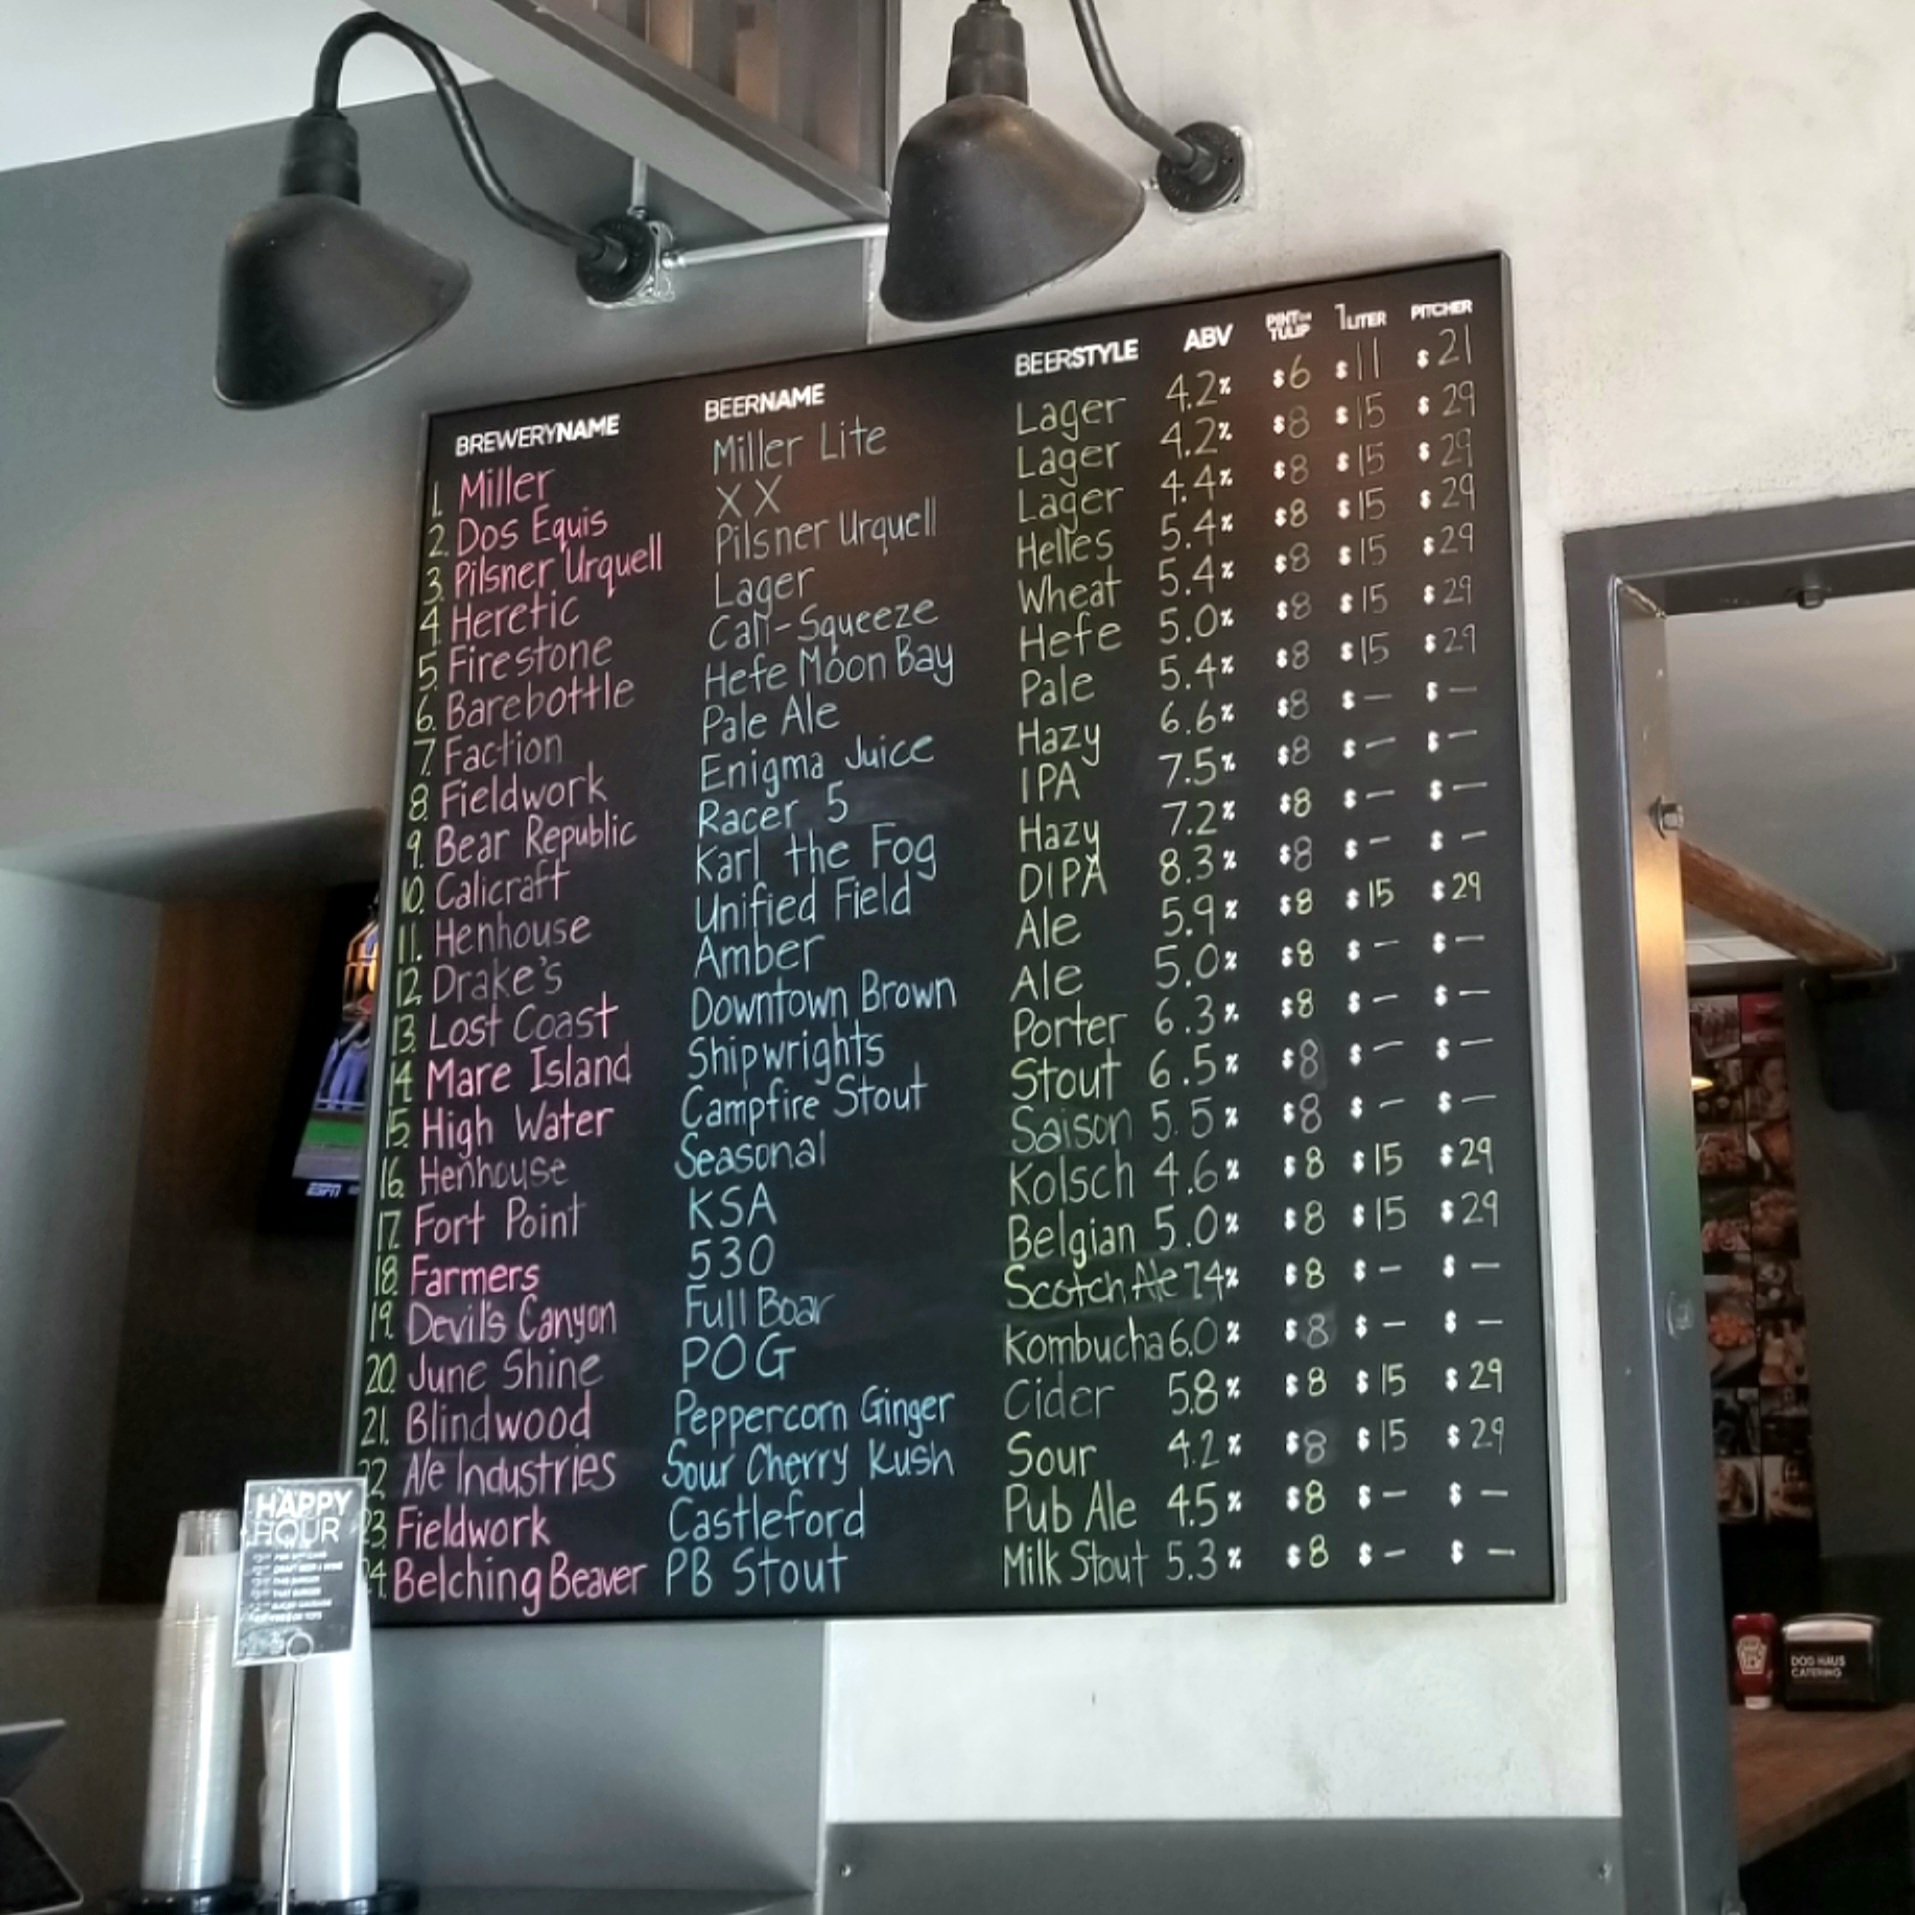 BREWERYNAME BEERNAME BEERSTYLE ABV PINT OR TULIP 1 LITER PITCHER
1. Miller Miller Lite Lager 4.2% $6 $11 $21
2. Dos Equis XX Lager 4.2% $8 $15 $29
3. Pilsner Urquell Pilsner Urquell Lager 4.4% $8 $15 $29
4. Heretic Lager Helles 5.4% $8 $15 $29
5. Firestone Cali-Squeeze Wheat 5.4% $8 $15 $29
6. Barebottle Hefe Moon Bay Hefe 5.0% $8 $15 $29
7. Faction Pale Ale Pale 5.4% $8 $15 $29
8. Fieldwork Enigma Juice Hazy 6.6% $8 $— $—
9. Bear Republic Racer 5 IPA 7.5% $8 $— $—
10. Calicraft Karl the Fog Hazy 7.2% $8 $— $—
11. Henhouse Unified Field DIPA 8.3% $8 $— $—
12. Drake's Amber Ale 5.9% $8 $15 $29
13. Lost Coast Downtown Brown Ale 5.0% $8 $— $—
14. Mare Island Shipwrights Porter 6.3% $8 $— $—
15. High Water Campfire Stout Stout 6.5% $8 $— $—
16. Henhouse Seasonal Saison 5.5% $8 $— $—
17. Fort Point KSA Kolsch 4.6% $8 $15 $29
18. Farmers 530 Belgian 5.0% $8 $15 $29
19. Devil's Canyon Full Boar Scotch Ale 7.4% $8 $— $—
20. June Shine POG Kombucha 6.0% $8 $— $—
21. Blindwood Peppercorn Ginger Cider 5.8% $8 $15 $29
22 Ale Industries Sour Cherry Kush Sour 4.2% $8 $15 $29
23 Fieldwork Castleford Pub Ale 4.5% $8 $— $—
24. Belching Beaver PB Stout Milk Stout 5.3% $8 $— $—
HAPPY
HOUR
ESPN
DOG HAUS
CATERING